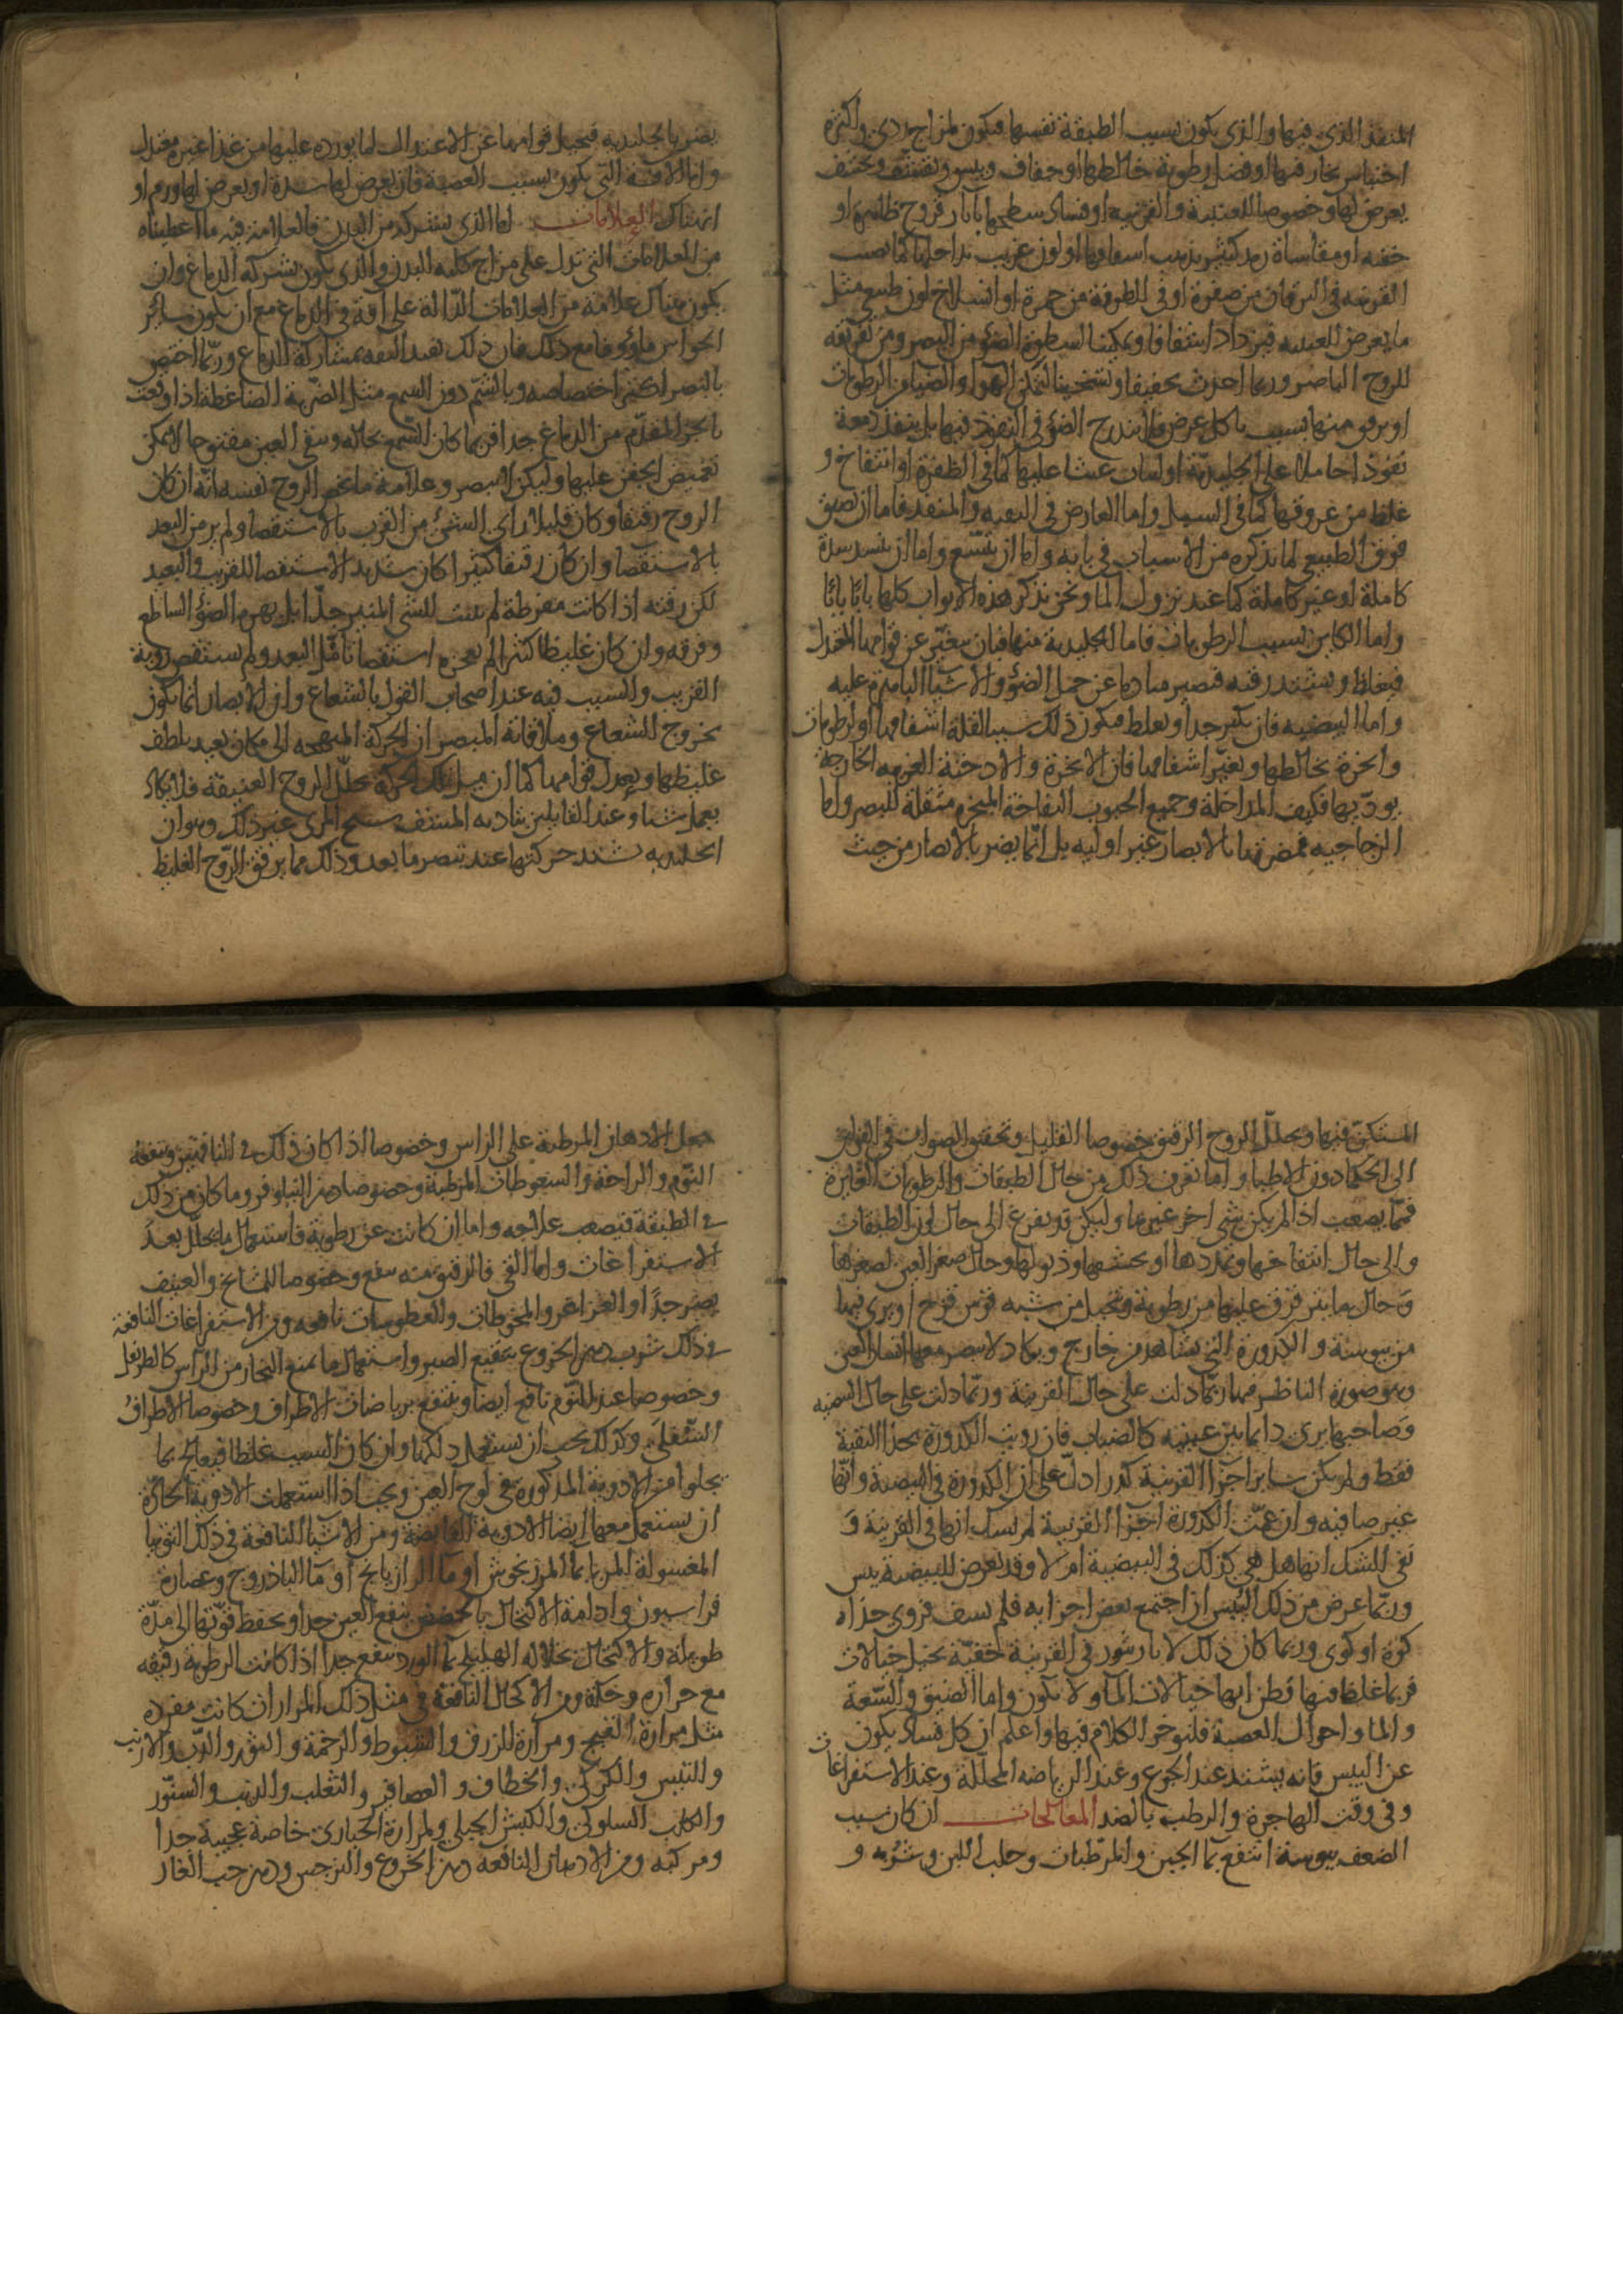 المنفذ الذي فيها والذي يكون بسبب الطبقة نفسها فيكون لمزاج ردي واكثره
احتباس بخار فيها او فضل رطوبة خالطها او جفاف ويبس وتقشف وتحشف
يعرض لها وخصوصا للعنبية والقرنية او فساد سطحها باثار قروح ظاهرة او
خفية او مقاساة رمد كثير يذهب اشفافها او لون غريب تداخلها كما يصيب
القرنية في اليرقان من صفرة او في الطرفة من حمرة او انسلاخ لون طبيعي مثل
ما يعرض للعنبيه فيزداد اشفافا وتمكينا لسطوة الضوء من البصر ومن تفرقه
للروح الباصر وربما احدث تجفيفا وتسخينا لتمكن الهوا والضيا من الرطوبات
او يرقق منها بسبب تاكل عرض فلا يتدرج الضوء في النفوذ فيها بل ينفذ دفعة
نفوذا حاملا على الجليدية او لنبات غشا عليها كما في الظفرة او انتفاخ و
غلظ من عروقها كما في السبل واما العارض في الثقبه والمنفذ فاما ان تضيق
فوق الطبيعي لما نذكره من الاسباب في بابه واما ان يتسع واما ان ينسد سدة
كاملة او غير كاملة كما عند نزول الما ونحن نذكر هذه الابواب كلها بابا بابا
واما الكاين بسبب الرطوبات فاما الجليدية منها فبان يتغير عن قوامها المعتدل
فيغلظ ويشتد رقته فيصير متاديا عن حمل الضوء والاشباح الباهرة عليه
واما البيضيه فان يكثر جدا ويغلظ فيكون ذلك سببا لقلة اشفافها او لرطوبات
وابخرة تخالطها وتغير اشفافها فان الابخرة والادخنة الغريبه الخارجة
يوذيها فكيف المداخلة وجميع الحبوب النفاخة المبخره مثقلة للبصر واما
الزجاجيه فمضرتها بالابصار غير اوليه بل انما يضر بالابصار من حيث
يضر بالجليديه فيحيل قوامها عن الاعتدال لما يورده عليها من غذا غير معتدل
واما الافة التي تكون بسبب العصبة فان يعرض لها سدة او يعرض لها ورم او
انهتاك العلامات اما الذي بشركه من البدن فالعلامة فيه ما اعطيناه
من العلامات التي تدل على مزاج كلية البدن والذي يكون بشركة الدماغ فان
يكون هناك علامة من العلامات الدالة على افة في الدماغ مع ان يكون ساير
الحواس ماوفا مع ذلك فان ذلك يفيد الثقه بمشاركة الدماغ وربما اختص
بالبصر اكثر اختصاصه وبالشم دون السمع مثل الضربة الضاغطة اذا وقعت
بالجز المقدم من الدماغ جدا فربما كان السمع بحاله وتبقى العين مفتوحا لا يمكن
تغميض الجفن عليها وليكن لا يبصر وعلامة ما يخص الروح نفسه انه ان كان
الروح رقيقا وكان قليلا راى الشي من القرب بالاستقصا ولم ير من البعد
بالاستقصا وان كان رقيقا كثيرا كان شديد الاستقصا للقريب والبعيد
لكن رقته اذا كانت مفرطة لم يثبت للشي المنير جدا بل بهره الضوء الساطع
وفرقه وان كان غليظا كثيرا لم يعجزه استقصا تامل البعيد ولم يستقص روية
القريب والسبب فيه عند اصحاب القول بالشعاع وان الابصار انما يكون
بخروج الشعاع وملاقاته المبصر ان الحركة المتجهه الى مكان بعيد يلطف
غليظها ويعدل قوامها كما ان مثل تلك الحركة يحلل الروح الرقيقة فلا يكاد
يعمل شيا وعند القايلين بتاديه المشف شبح المرئ غير ذلك وهو ان
الجليديه تشتد حركتها عند تبصر ما بعد وذلك مما يرقق الروح الغليظ
المستكن فيها ويحلل الروح الرقيق خصوصا القليل وتحقيق الصواب في القولين
الى الحكما دون الاطبا واما تعرف ذلك من حال الطبقات والرطوبات الغايرة
فمما يصعب اذا لم يكن شي اخر غيرها وليكن قد يفزع الى حال لون الطبقات
والى حال انتفاخها وتمددها او تحشفها وذبولها وحال صغر العين لصغرها
وحال ما يترقرق عليها من رطوبة ويتخيل من شبه قوس قزح او يرى فيها
من يبوسة والكدورة التي تشاهد من خارج ويكاد لا يبصر معها انسان العين
وهو صورة الناظر فيها ربما دلت على حال القرنية وربما دلت على حال البيضيه
وصاحبها يرى دايما بين عينيه كالضباب فان رويت الكدورة بحذا الثقبة
فقط ولم يكن ساير اجزا القرنية كدرا دل على ان الكدورة في البيضية وانها
غير صافيه وان عمت الكدورة اجزا القرنيه لم يشك انها في القرنية و
بقي الشك انها هل هي كذلك في البيضية ام لا وقد يعرض للبيضية يبس
وربما عرض من ذلك اليبس ان اجتمع بعض اجزايه فلم يشف فروي حذاه
كوة او كوى وربما كان ذلك لاثار بثور في القرنية خفية تخيل خيالات
فربما غلط فيها فظن انها خيالات الما ولا تكون واما الضيق والسعة
والما واحوال العصبة فلنوخر الكلام فيها واعلم ان كل فساد يكون
عن اليبس فانه يشتد عند الجوع وعند الرياضه المحللة وعند الاستفراغات
وفي وقت الهاجرة والرطب بالضد المعالجات ان كان سبب
الضعف يبوسة انتفع بما الجبن والمرطبات وحلب اللبن وشربه و
جعل الادهان المرطبة على الراس وخصوصا اذا كان ذلك في الناقهين وينفعه
النوم والراحة والسعوطات المرطبة وخصوصا دهن النيلوفر وما كان من ذلك
في الطبقة فيصعب علاجه واما ان كانت عن رطوبة فاستعمال ما يحلل بعد
الاستفراغات واما القي فالرقيق منه ينفع وخصوصا للمشايخ والعنيف
يضر جدا او الغراغر والمخوطات والعطوسات نافعه ومن الاستفراغات النافعة
في ذلك شرب دهن الخروع بنقيع الصبر واستعمال ما يمنع البخار من الراس كالاطريفل
وخصوصا عند النوم نافع ايضا وينتفع برياضات الاطراف وخصوصا الاطراف
السفلى وكذلك يجب ان يستعمل دلكها وان كان السبب غلظا فيعالج بما
يجلوا من الادوية المذكورة في لوح العين ويجب اذا استعملت الادوية الحادة
ان يستعمل معها ايضا الادوية القابضة ومن الاشيا النافعة في ذلك التوتيا
المغسولة المربا بما المرزنجوش او ما الرازيانج او ما الباذروج وعصارة
فراسيون وادامة الاكتحال بالحضض ينفع العين جدا ويحفظ قوتها الى مدة
طويلة والاكتحال بحلاله الهليلج بما الورد ينفع جدا اذا كانت الرطوبة رقيقه
مع حرارة وحكة ومن الاكحال النافعة في مثل ذلك المرار ان كانت مفرده
مثل مرارة القبج ومرارة الزرق والشبوط والرخمة والثور والدب والارنب
والتيس والكركي والخطاف والعصافير والثعلب والذيب والسنور
والكلب السلوقي والكبش الجبلي ولمرارة الحبارى خاصة عجيبة جدا
ومركبه ومن الادهان النافعة دهن الخروع والنرجس ودهن حب الغار